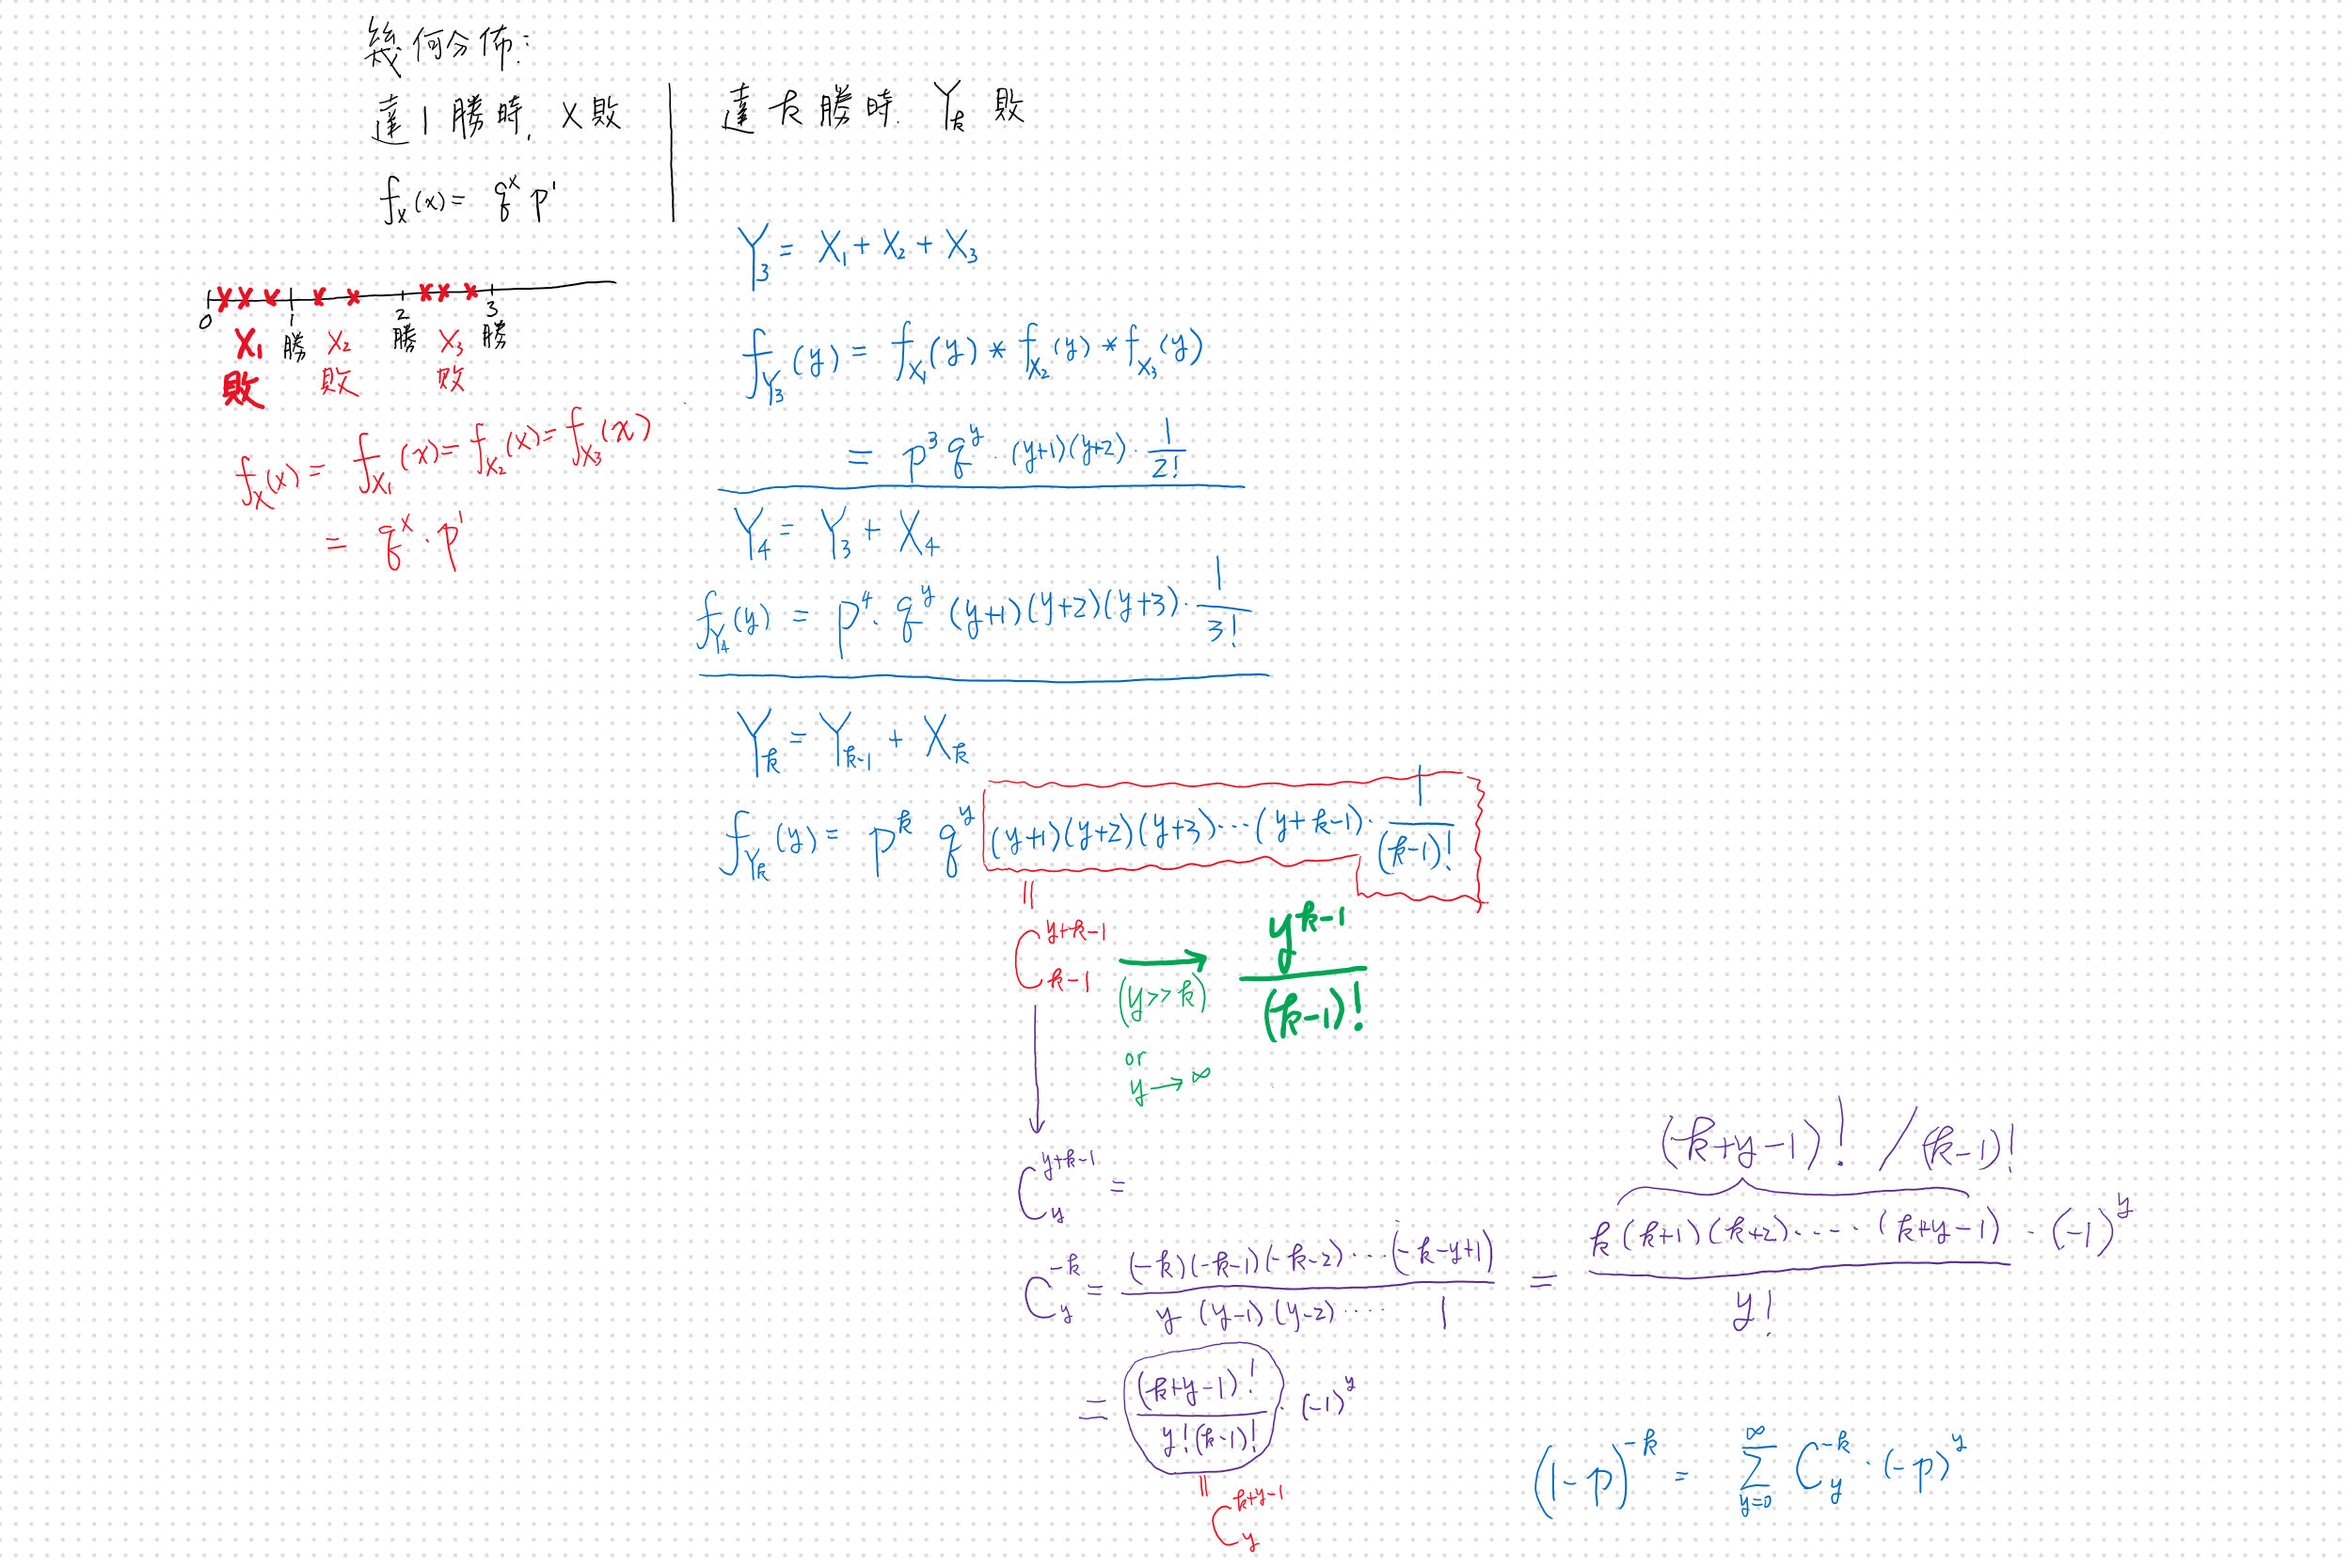 幾何分佈:
達1勝時, X敗
f_X(x) = q^x p^1
達k勝時. Y_k敗
0 1 2 3
勝 勝 勝
X_1 X_2 X_3
敗 敗 敗
f_X(x) = f_{X_1}(x) = f_{X_2}(x) = f_{X_3}(x)
= q^x · p^1
Y_3 = X_1 + X_2 + X_3
f_{Y_3}(y) = f_{X_1}(y) * f_{X_2}(y) * f_{X_3}(y)
= p^3 q^y · (y+1)(y+2) · 1/2!
Y_4 = Y_3 + X_4
f_{Y_4}(y) = p^4 · q^y (y+1)(y+2)(y+3) · 1/3!
Y_k = Y_{k-1} + X_k
f_{Y_k}(y) = p^k q^y (y+1)(y+2)(y+3)···(y+k-1) · 1/(k-1)!
=
C^{y+k-1}_{k-1} → y^{k-1}/(k-1)!
(y>>k)
or
y→∞
C^{y+k-1}_y =
(k+y-1)! / (k-1)!
C^{-k}_y = (-k)(-k-1)(-k-2)···(-k-y+1) / y (y-1)(y-2)···· 1 = k(k+1)(k+2)·····(k+y-1) · (-1)^y / y!
= (k+y-1)! / y!(k-1)! · (-1)^y
=
C^{k+y-1}_y
(1-p)^{-k} = ∑_{y=0}^{∞} C^{-k}_y · (-p)^y